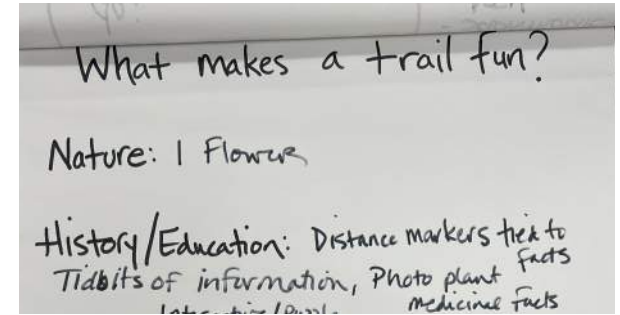 What makes a trail fun?
Nature: 1 Flowers
History/Education: Distance markers tied to
facts
Tidbits of information, Photo plant
medicinal facts